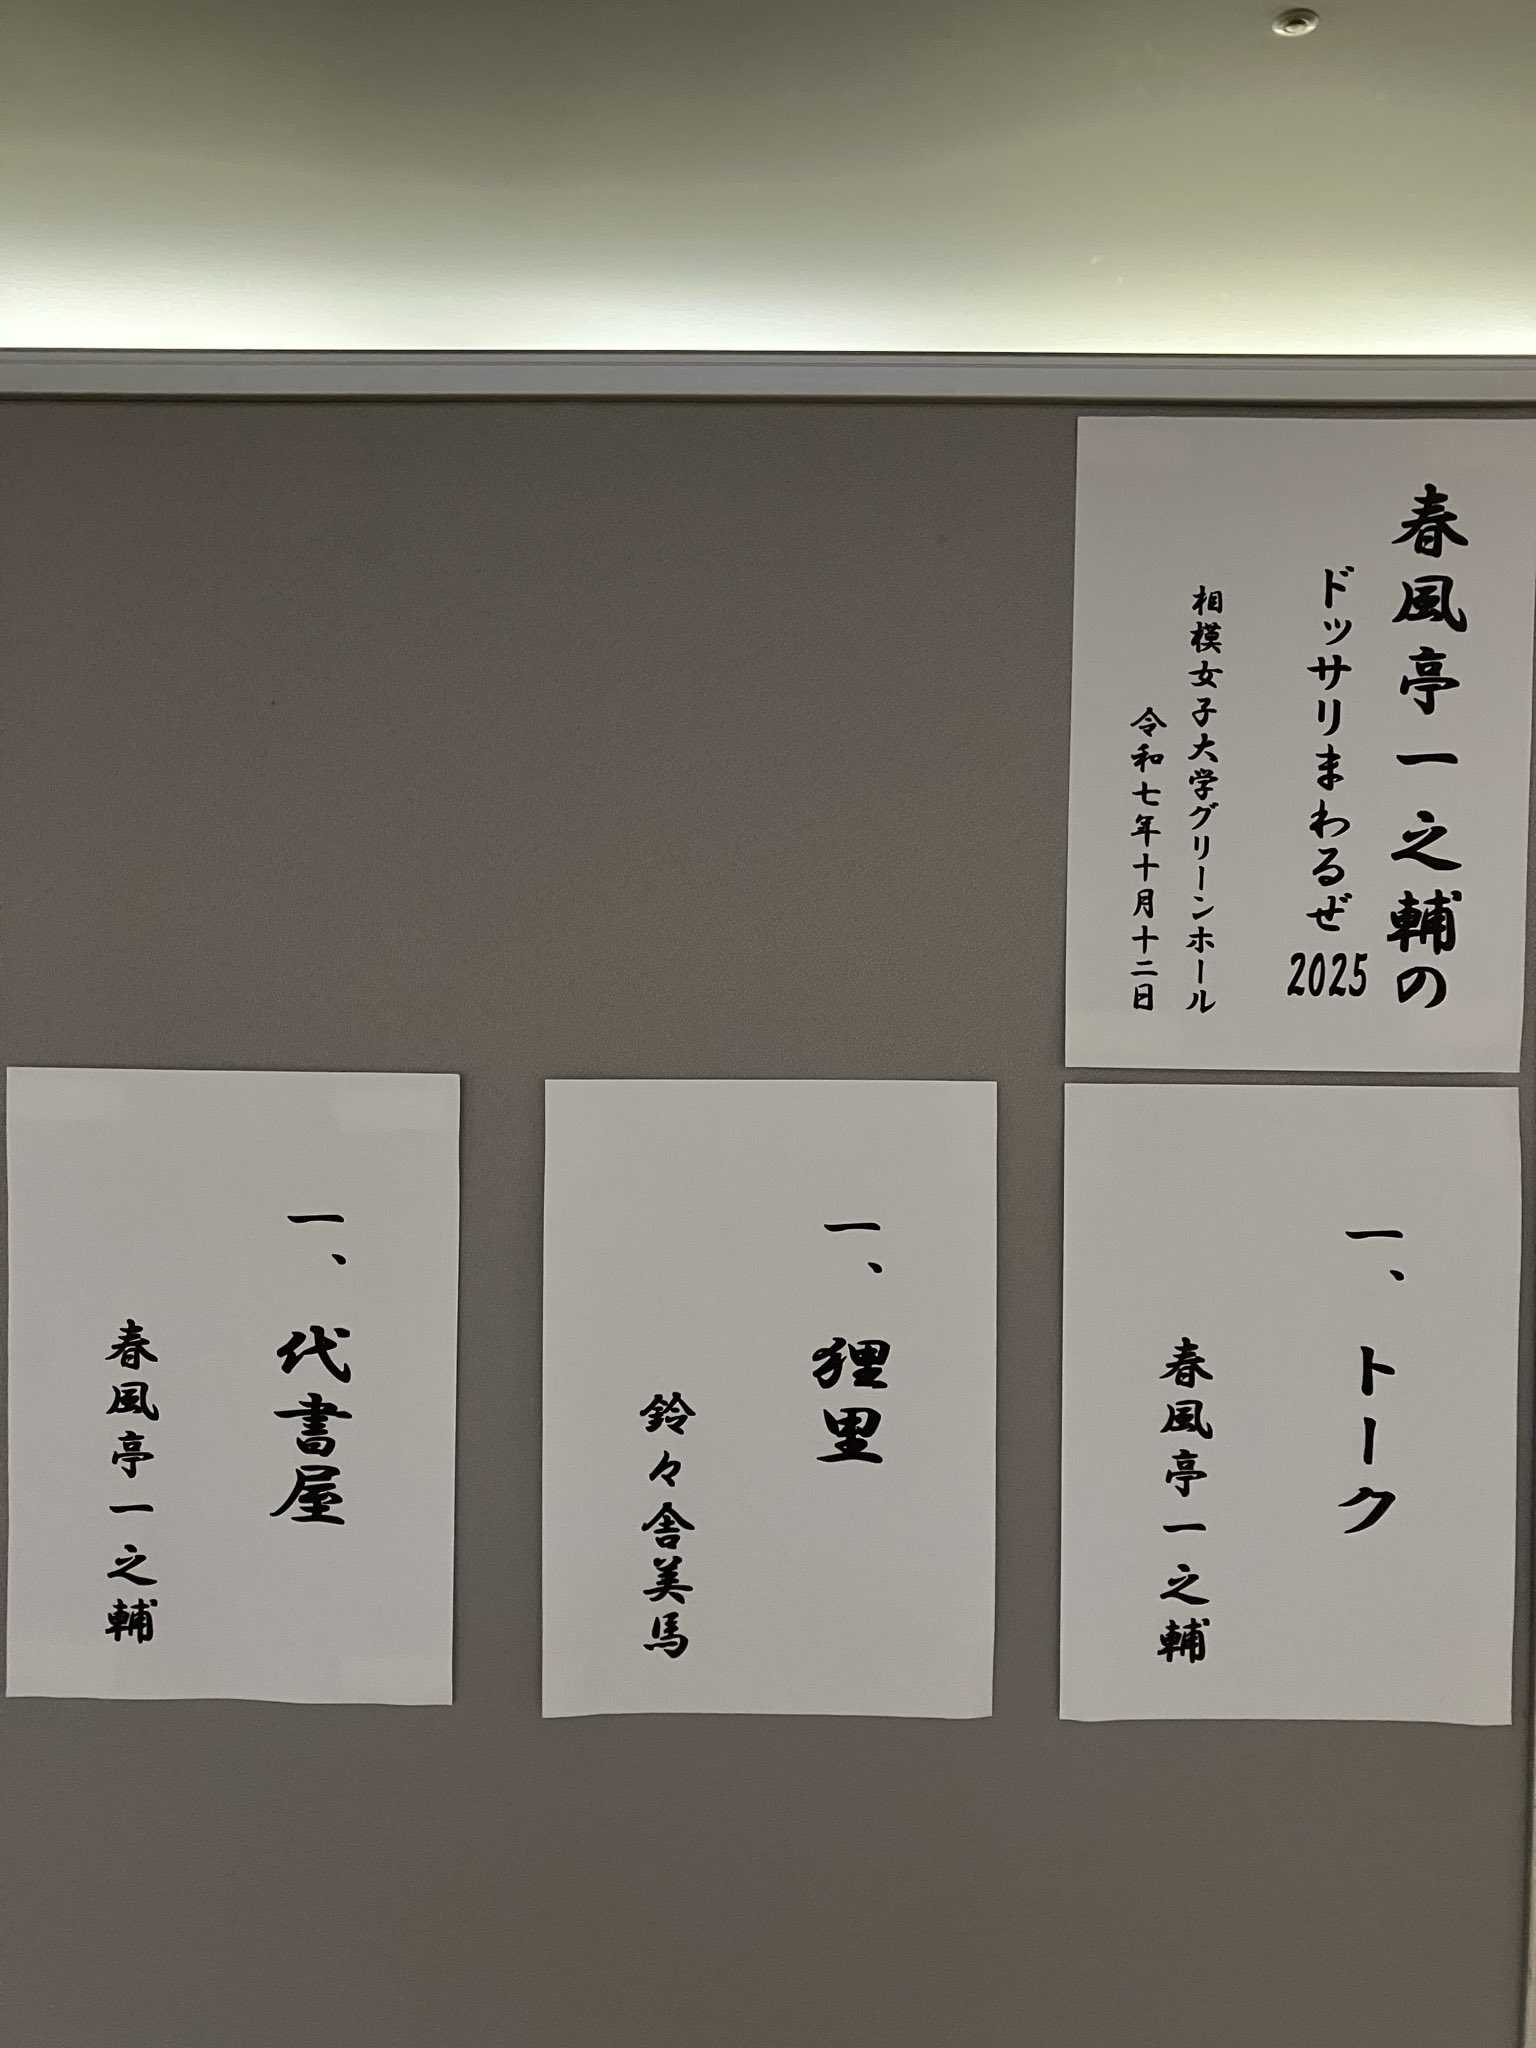 春風亭一之輔の
ドッサリまわるぜ2025
相模女子大学グリーンホール
令和七年十月十二日
一、トーク
春風亭一之輔
一、狸里
鈴々舎美馬
一、代書屋
春風亭一之輔